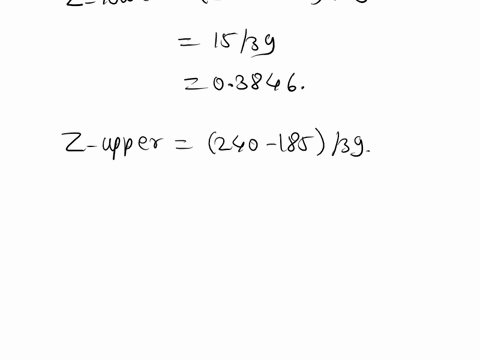 = 15/39
= 0.3846.
Z-upper = (240-185)/39.